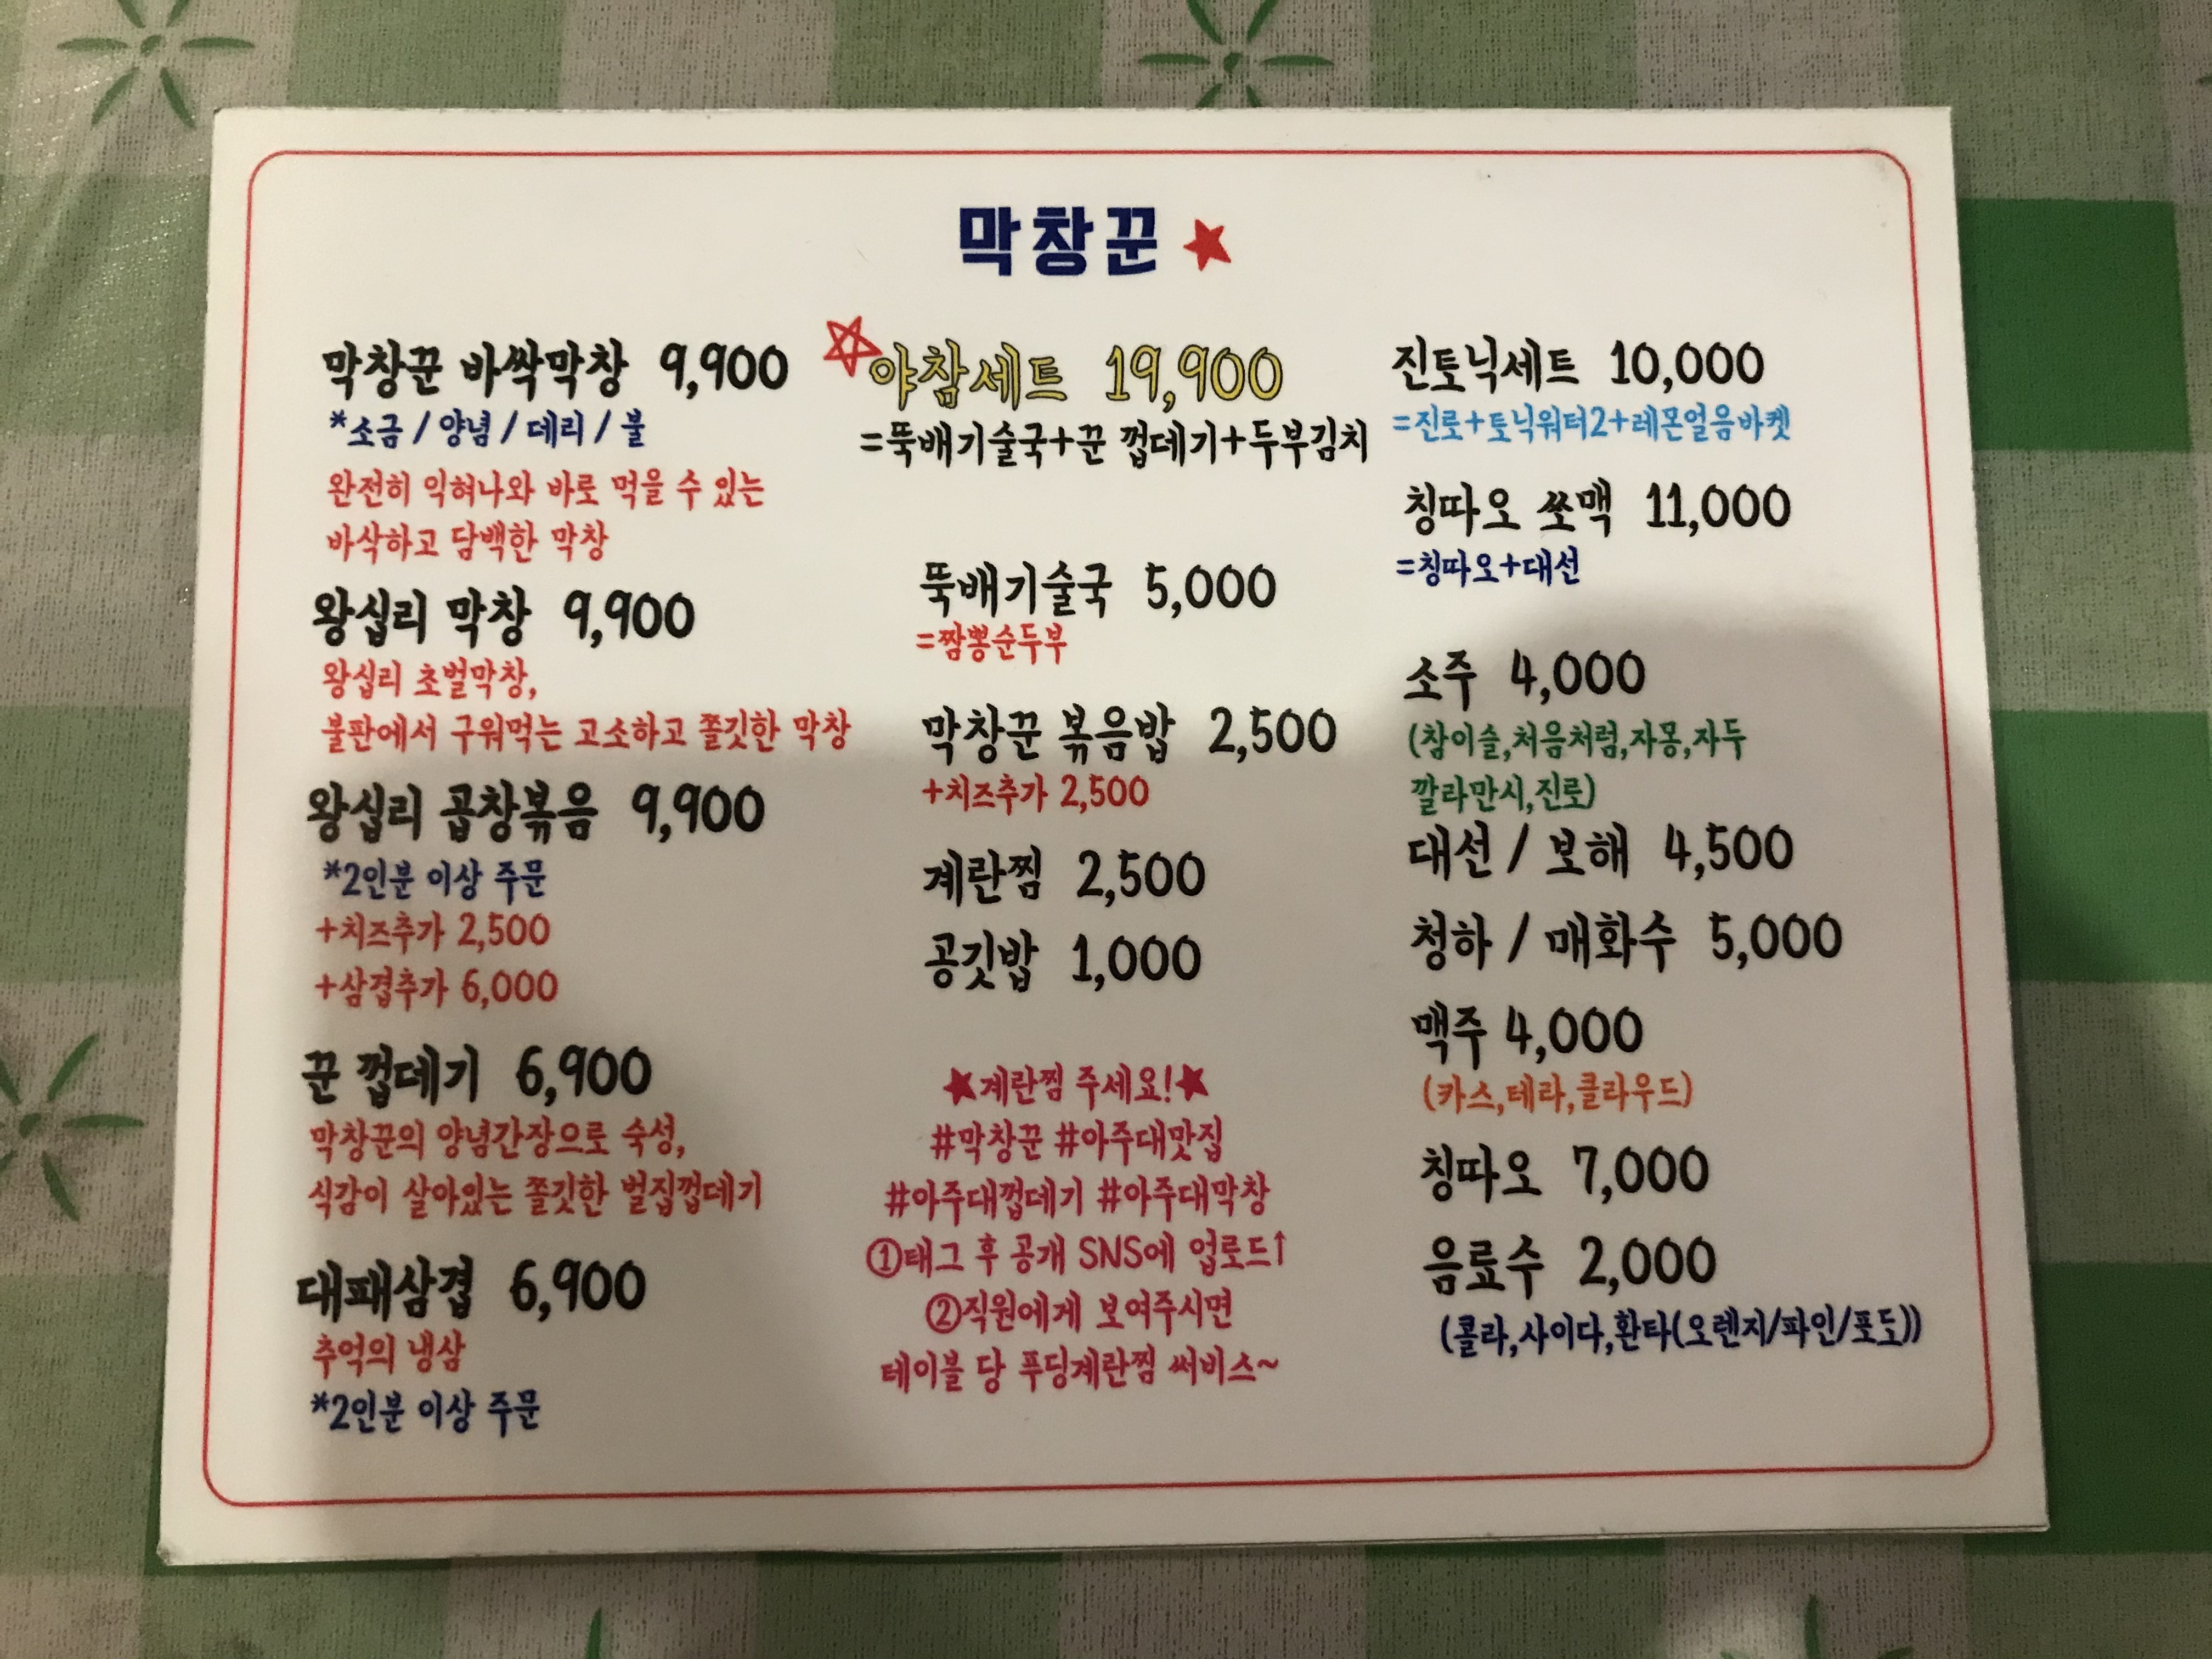 막창꾼
막창꾼 바싹막창 9,900
*소금 / 양념 / 데리 / 불
완전히 익혀나와 바로 먹을 수 있는
바삭하고 담백한 막창
왕십리 막창 9,900
왕십리 초벌막창,
불판에서 구워먹는 고소하고 쫄깃한 막창
왕십리 곱창볶음 9,900
*2인분 이상 주문
+치즈추가 2,500
+삼겹추가 6,000
꾼 껍데기 6,900
막창꾼의 양념간장으로 숙성,
식감이 살아있는 쫄깃한 벌집껍데기
대패삼겹 6,900
추억의 냉삼
*2인분 이상 주문
야참세트 19,900
=뚝배기술국+꾼 껍데기+두부김치
뚝배기술국 5,000
=짬뽕순두부
막창꾼 볶음밥 2,500
+치즈추가 2,500
계란찜 2,500
공깃밥 1,000
★계란찜 주세요!★
#막창꾼 #아주대맛집
#아주대껍데기 #아주대막창
①태그 후 공개 SNS에 업로드↑
②직원에게 보여주시면
테이블 당 푸딩계란찜 써비스~
진토닉세트 10,000
=진로+토닉워터2+레몬얼음바켓
칭따오 쏘맥 11,000
=칭따오+대선
소주 4,000
(참이슬,처음처럼,자몽,자두
깔라만시,진로)
대선 / 보해 4,500
청하 / 매화수 5,000
맥주 4,000
(카스,테라,클라우드)
칭따오 7,000
음료수 2,000
(콜라,사이다,환타(오렌지/파인/포도))